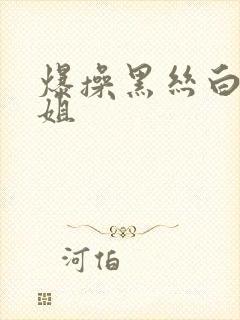 爆操黑丝白
姐
河伯